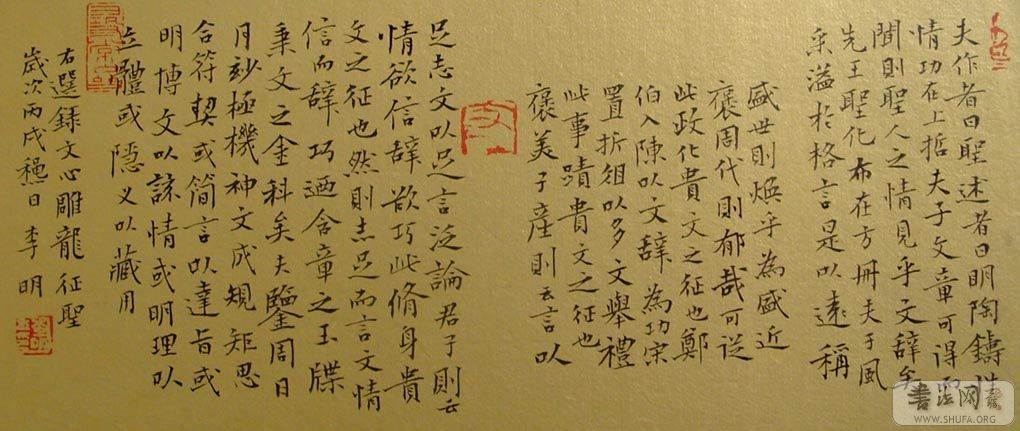 夫作者曰聖述者曰明陶鑄性
情功在上哲夫子文章可得而
聞則聖人之情見乎文辭矣
先王聖化布在方冊夫子風
采溢於格言是以遠稱
盛世則煥乎為盛近
褒周代則郁哉可從
此政化貴文之征也鄭
伯入陳以文辭為功宋
置折俎以多文舉禮
此事蹟貴文之征也
褒美子產則云言以
足志文以足言泛論君子則云
情欲信辭欲巧此脩身貴
文之征也然則志足而言文情
信而辭巧迺含章之玉牒
秉文之金科矣夫鑒周日
月玅極機神文成規矩思
合符契或简言以達旨或
明博文以該情或明理以
立體或隱义以藏用
右選錄文心雕龍征聖
歲次丙戌穐日李明
書法网
WWW.SHUFA.ORG